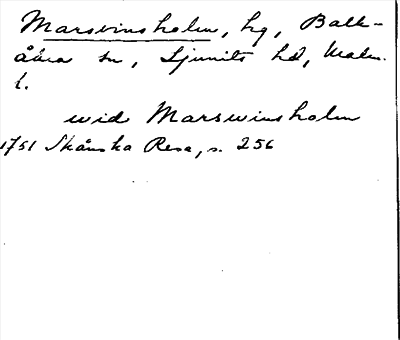 Marsvinsholm, hg, Balk-
åkra sn, Ljunits hd, Malm.
l.
wid Marswinsholm
1751 Skånska Resa, s. 256